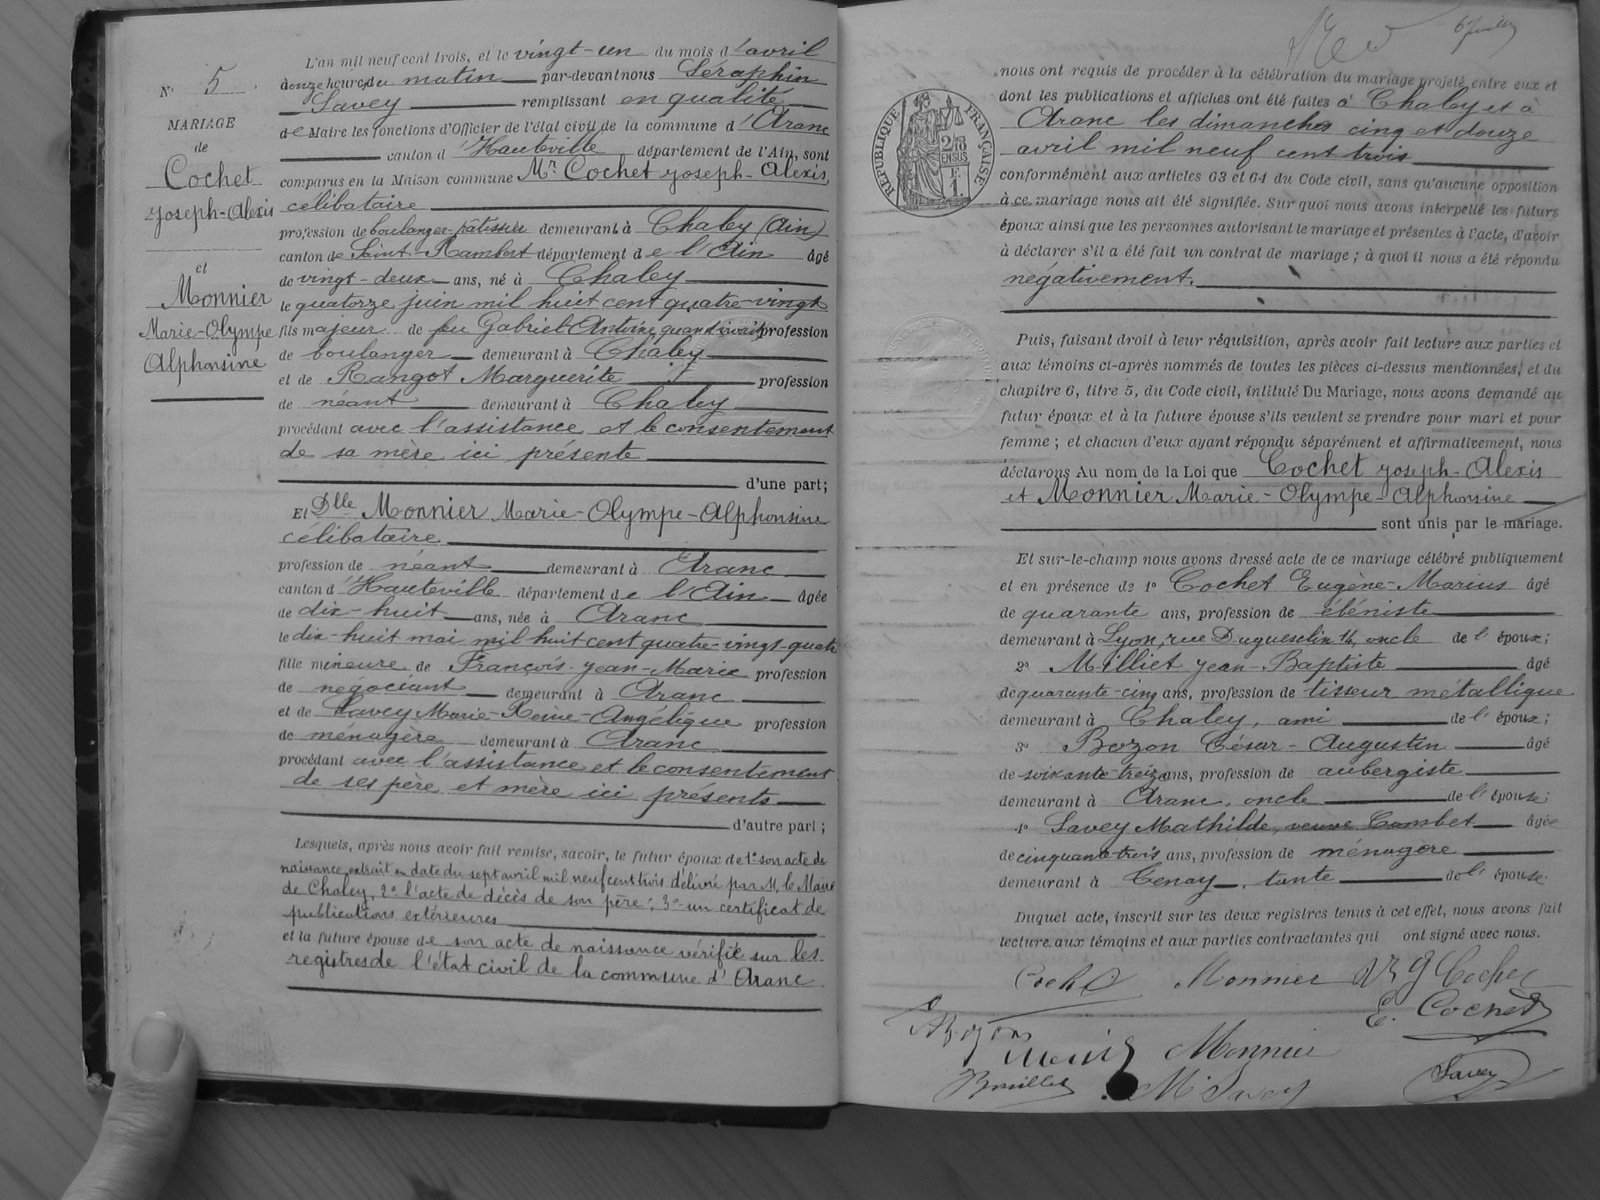 N° 5
MARIAGE
de
Cochet
Joseph-Alexis
et
Monnier
Marie-Olympe
Alphonsine
L'an mil neuf cent trois, et le vingt-un du mois d'avril
à onze heures du matin par-devant nous Séraphin
Savey remplissant en qualité
de Maire les fonctions d'Officier de l'état civil de la commune d'Aranc
canton d'Hauteville département de l'Ain, sont
comparus en la Maison commune Mr Cochet Joseph-Alexis,
célibataire
profession de boulanger-pâtissier demeurant à Chaley (Ain)
canton de Saint-Rambert département de l'Ain âgé
de vingt-deux ans, né à Chaley
le quatorze juin mil huit cent quatre-vingt
fils majeur de feu Gabriel-Antoine, quand vivait profession
de boulanger demeurant à Chaley
et de Rangot Marguerite profession
de néant demeurant à Chaley
procédant avec l'assistance et le consentement
de sa mère ici présente
d'une part;
Et Dlle Monnier Marie-Olympe-Alphonsine
célibataire
profession de néant demeurant à Aranc
canton d'Hauteville département de l'Ain âgée
de dix-huit ans, née à Aranc
le dix-huit mai mil huit cent quatre-vingt-quatre
fille mineure de François-Jean-Marie profession
de négociant demeurant à Aranc
et de Savey Marie-Reine-Angélique profession
de ménagère demeurant à Aranc
procédant avec l'assistance et le consentement
de ses père et mère ici présents
d'autre part;
Lesquels, après nous avoir fait remise, savoir, le futur époux de 1° son acte de
naissance extrait en date du sept avril mil neuf cent trois délivré par M. le Maire
de Chaley, 2° l'acte de décès de son père; 3° un certificat de
publications extérieures
et la future épouse de son acte de naissance vérifié sur les
registres de l'état civil de la commune d'Aranc
RÉPUBLIQUE FRANÇAISE
2/10
EN SUS
nous ont requis de procéder à la célébration du mariage projeté entre eux et
dont les publications et affiches ont été faites à Chaley et à
Aranc les dimanches cinq et douze
avril mil neuf cent trois
conformément aux articles 63 et 64 du Code civil, sans qu'aucune opposition
à ce mariage nous ait été signifiée. Sur quoi nous avons interpellé les futurs
époux ainsi que les personnes autorisant le mariage et présentes à l'acte, d'avoir
à déclarer s'il a été fait un contrat de mariage; à quoi il nous a été répondu
négativement.
Puis, faisant droit à leur réquisition, après avoir fait lecture aux parties et
aux témoins ci-après nommés de toutes les pièces ci-dessus mentionnées, et du
chapitre 6, titre 5, du Code civil, intitulé Du Mariage, nous avons demandé au
futur époux et à la future épouse s'ils veulent se prendre pour mari et pour
femme; et chacun d'eux ayant répondu séparément et affirmativement, nous
déclarons Au nom de la Loi que Cochet Joseph-Alexis
et Monnier Marie-Olympe-Alphonsine
sont unis par le mariage.
Et sur-le-champ nous avons dressé acte de ce mariage célébré publiquement
et en présence de 1° Cochet Eugène-Marius âgé
de quarante ans, profession de ébéniste
demeurant à Lyon, rue Duguesclin 14, oncle de l'époux;
2° Milliet Jean-Baptiste âgé
de quarante-cinq ans, profession de tisseur métallique
demeurant à Chaley, ami de l'époux;
3° Bozon César-Augustin âgé
de soixante-treize ans, profession de aubergiste
demeurant à Aranc, oncle de l'épouse;
4° Savey Mathilde, veuve Combet âgée
de cinquante-trois ans, profession de ménagère
demeurant à Tenay, tante de l'épouse.
Duquel acte, inscrit sur les deux registres tenus à cet effet, nous avons fait
lecture aux témoins et aux parties contractantes qui ont signé avec nous.
Cochet Monnier Cochet
E. Cochet
Bozon
Monnier
M. Savey Savey